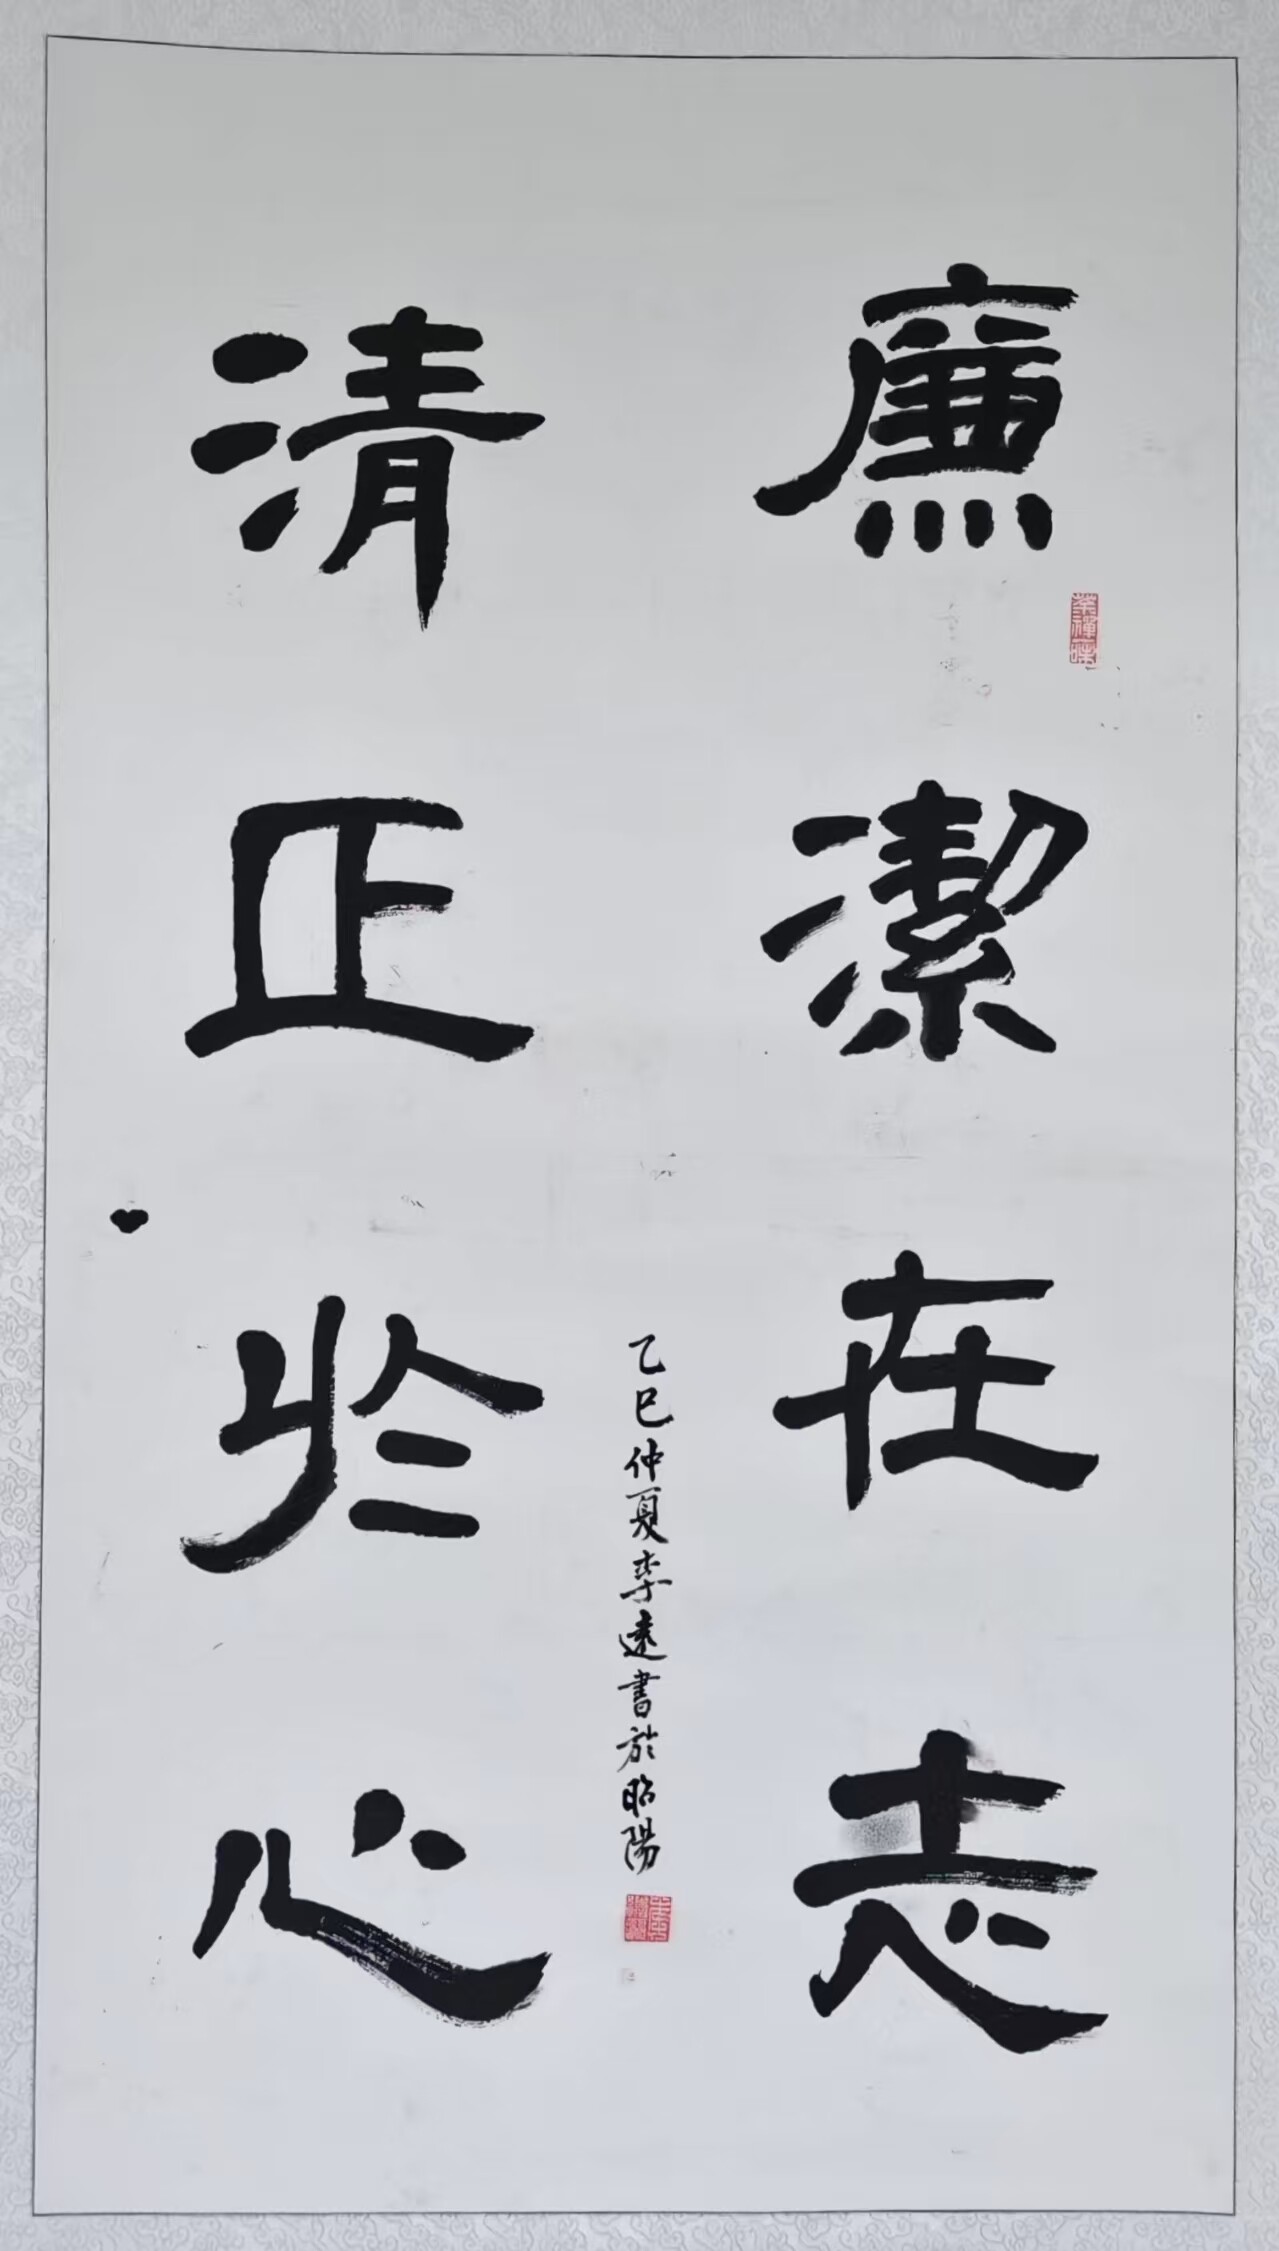 廉潔在志
清正於心
乙巳仲夏李遠書於昭陽